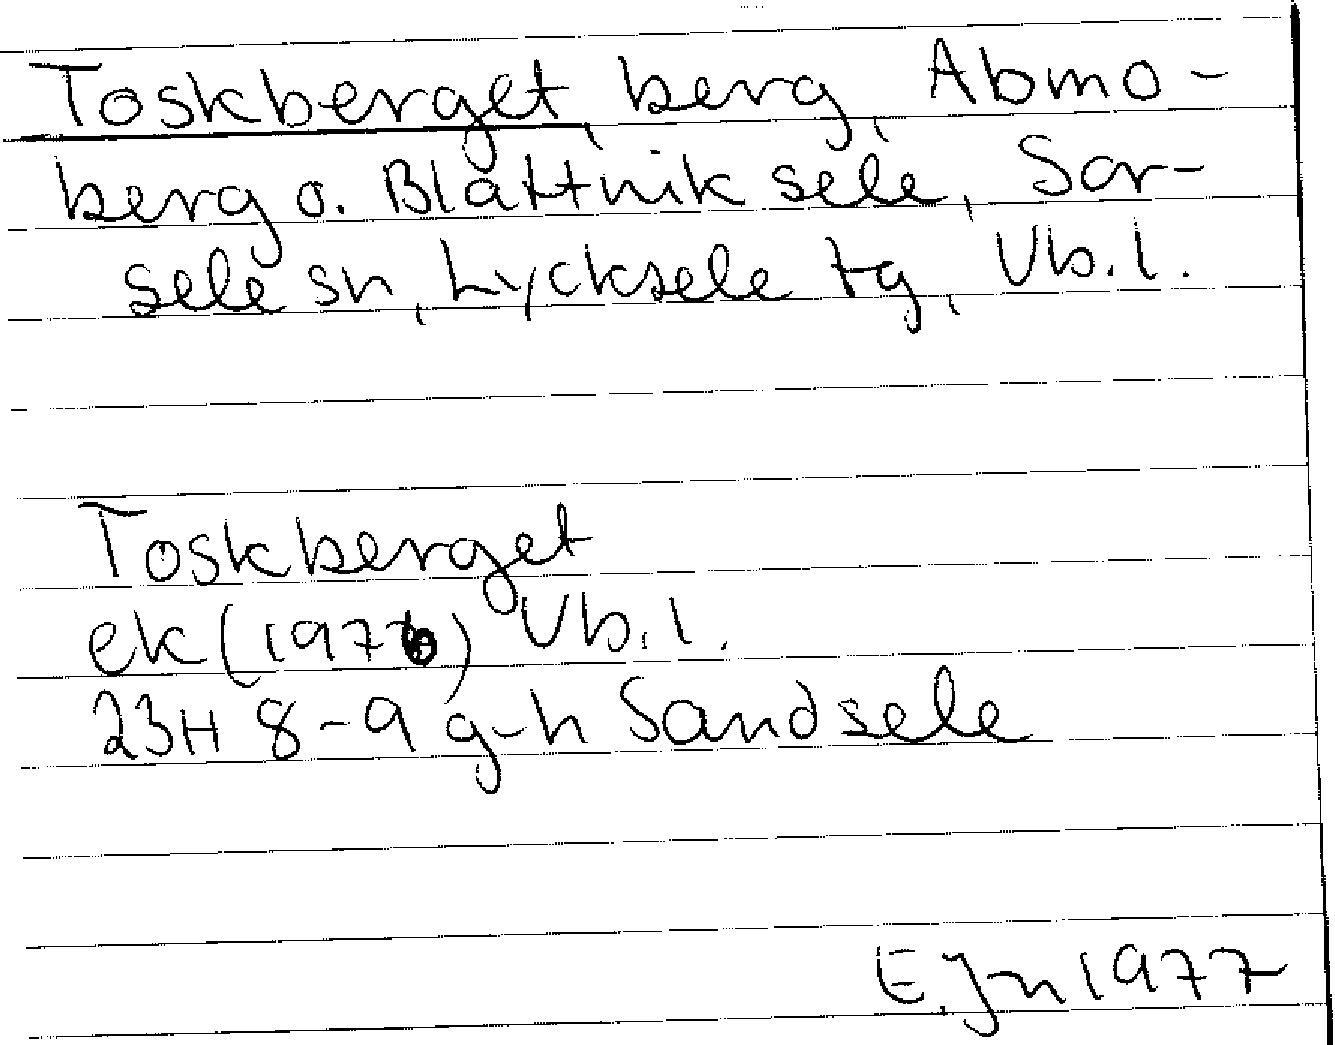 Toskberget, berg, Abmo-
berg o. Blattniksele, Sor-
sele sn, Lycksele tg, Vb.l.
Toskberget
ek (1976) Vb.l.
23H 8-9 g-h Sandsele
E.Jn 1977